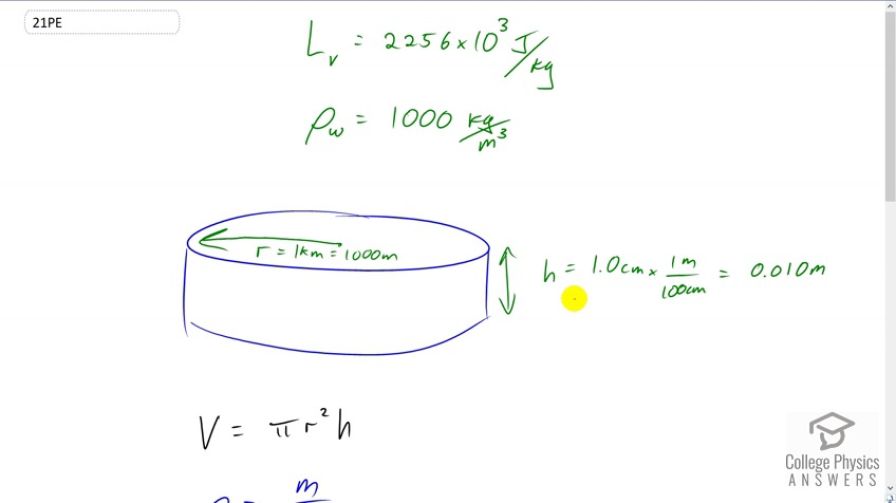 21PE
Lv = 2256 × 10³ J/kg
ρw = 1000 kg/m³
r = 1km = 1000m
h = 1.0cm × 1m/100cm = 0.010m
V = πr²h
m
College Physics
ANSWERS